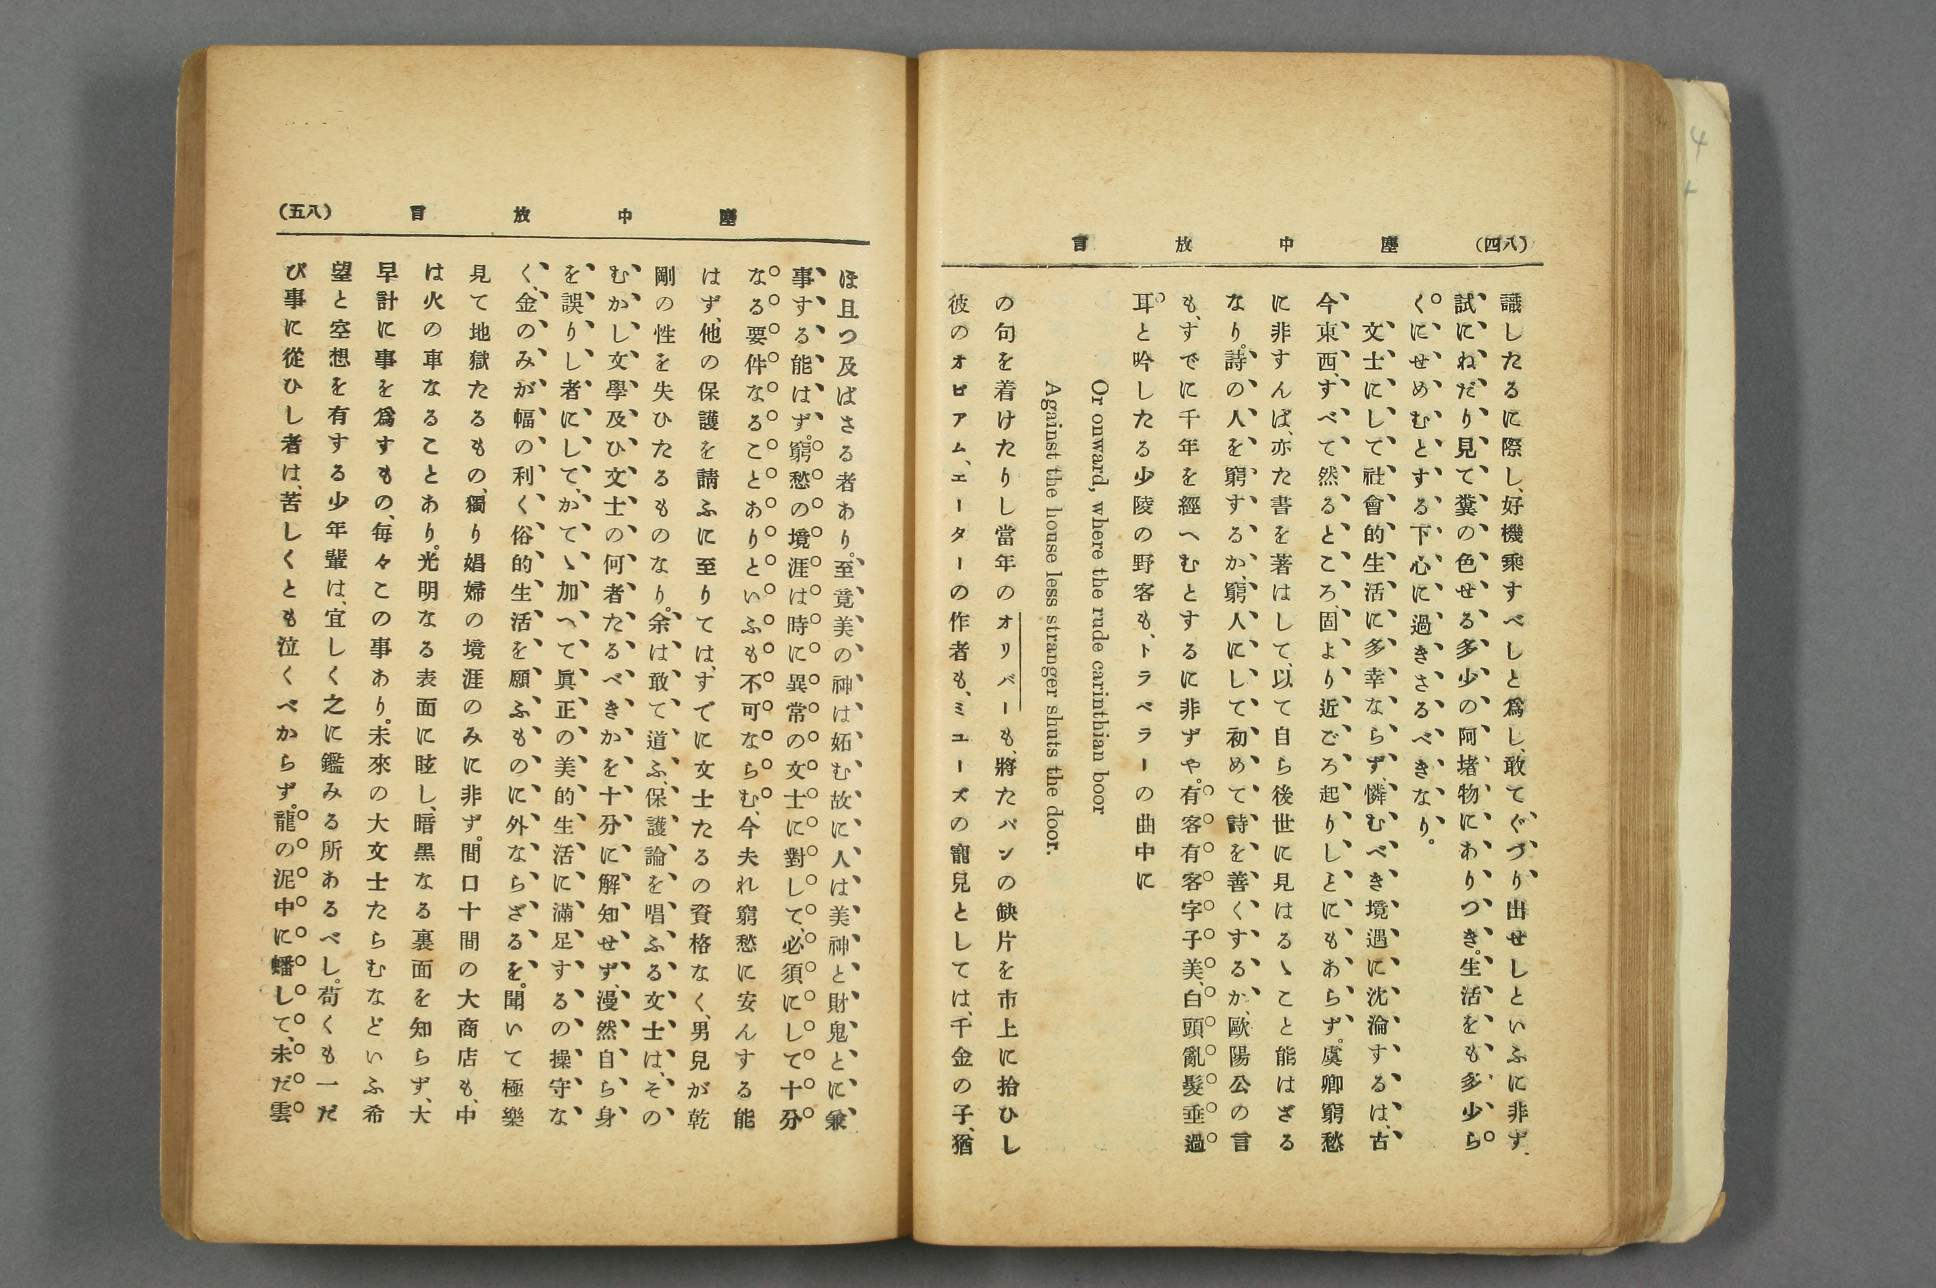 (八四)
塵中放言
識したるに際し、好機乘すべしと爲し、敢てぐづり出せしといふに非ず、
試にねだり見て糞の色せる多少の阿堵物にありつき。生活をも多少ら
くにせめむとする下心に過きさるべきなり。
文士にして社會的生活に多幸ならず、憐むべき境遇に沈淪するは、古
今東西、すべて然るところ、固より近ごろ起りしとにもあらず。虞卿窮愁
に非すんば、亦た書を著はして、以て自ら後世に見はるゝこと能はざる
なり。詩の人を窮するか、窮人にして初めて詩を善くするか、歐陽公の言
も、すでに千年を經へむとするに非ずや。有客有客字子美、白頭亂髮垂過
耳と吟したる少陵の野客も、トラベラーの曲中に
Or onward, where the rude carinthian boor
Against the house less stranger shuts the door.
の句を着けたりし當年のオリバーも、將たパンの缺片を市上に拾ひし
彼のオピアム、エーターの作者も、ミユーズの寵兒としては、千金の子、猶
塵中放言
(八五)
ほ且つ及ばさる者あり。至竟美の神は妬む故に人は美神と財鬼とに兼
事する能はず。窮愁の境涯は時に異常の文士に對して、必須にして十分
なる要件なることありといふも不可ならむ、今夫れ窮愁に安んする能
はず、他の保護を請ふに至りては、すでに文士たるの資格なく、男兒が乾
剛の性を失ひたるものなり。余は敢て道ふ、保護論を唱ふる文士は、その
むかし文學及ひ文士の何者たるべきかを十分に解知せず、漫然自ら身
を誤りし者にして、かてゝ加へて眞正の美的生活に滿足するの操守な
く、金のみが幅の利く俗的生活を願ふものに外ならざるを。聞いて極樂
見て地獄たるもの、獨り娼婦の境涯のみに非ず。間口十間の大商店も、中
は火の車なることあり。光明なる表面に眩し、暗黑なる裏面を知らず、大
早計に事を爲すもの、每々この事あり。未來の大文士たらむなどいふ希
望と空想を有する少年輩は、宜しく之に鑑みる所あるべし。苟くも一だ
び事に從ひし者は、苦しくとも泣くべからず。龍の泥中に蟠して、未だ雲